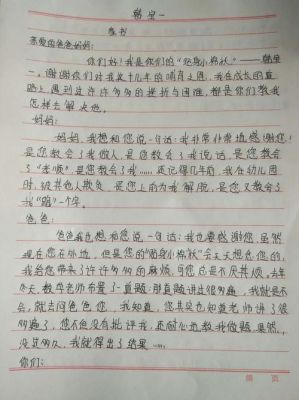 韩呈一
家书
亲爱的爸爸妈妈:
你们好!我是你们的“贴身小棉袄”——韩呈
一。谢谢你们对我这十几年的哺育之恩,我在成长的道
路上遇到过许许多多的挫折与困难,都是你们教我
怎样去解决他。
妈妈:
妈妈,我想和您说一句话:我非常非常地感谢您!
是您教会了我做人,是您教会了我说话,是您教会
了“孝顺”是您教会了我……还记得几年前,我在幼儿园
时,被其他人欺负,是您上前为我解脱,是您又教会了
我“ ”一个字。
爸爸:
爸爸我也想和您说一句话:我也要感谢您,虽然
现在您在外边,但是您的“贴身小棉袄”会天天想念您的,
我给您带来了许许多多的麻烦,可您还是不厌其烦,去年
冬天,数学老师布置了一道题:那道题讲过很多遍,我就是不
会,就去问爸爸您,我知道,您其实也知道老师讲了很
多遍了,您不但没有批评我,还耐心地教我做题,果然,
没过多久,我就得出了结果……
你们:
第 页